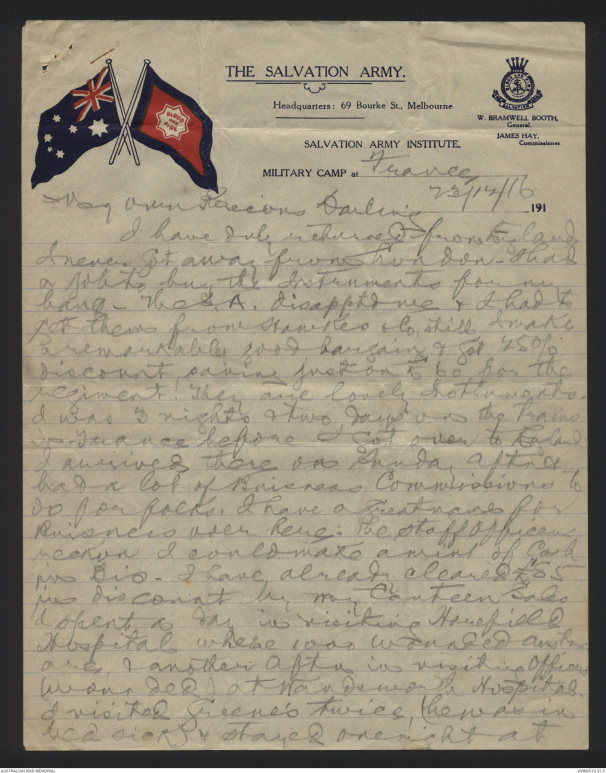 THE SALVATION ARMY.
Headquarters: 69 Bourke St., Melbourne
BLOOD AND FIRE
W. BRAMWELL BOOTH,
General.
JAMES HAY,
Commissioner
SALVATION ARMY INSTITUTE,
MILITARY CAMP at France
23/12/16
191
My Own Precious Darling
I have only returned from England
I never got away from London. I had
a job to buy the Instruments for my
band - The S.A. disapptd me & I had to
get them from Hawkes & Co, still I made
a remarkably good bargain & got 25%
discount, saving just on £ 60 for the
regiment. They are lovely Instruments.
I was 3 nights & two days in the trains
in France before I got over to England
I arrived there on Sunday Aftn &
had a lot of Buisness Commissions to
do for folks. I have a great name for
Buisness over here. The Staff Officers
reckon I could make a mint of Cash
in Bis - I have already cleared £55
in discount by my Canteen Sales
I spent a day in visiting Harefield
Hospital where 1000 wounded
are, & another Aftn in visiting Officers
(wounded) at Wandsworth Hospital.
I visited Greene's twice, (he was in
bed sick) & stayed one night at
AUSTRALIAN WAR MEMORIAL